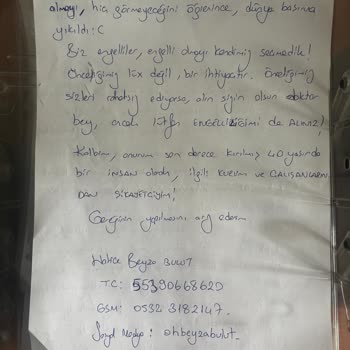 olmayı, hiç görmeyeceğini öğrenince, dünya başıma
yıkıldı :C
Biz engelliler, engelli olmayı kendimiz seçmedik!
Önceliğimiz lüx değil, bir ihtiyaçtır. Önceliğimiz
sizleri rahatsız ediyorsa, alın sizin olsun doktor
bey, ancak lütfen ENGELLİLİĞİMİ de ALINIZ!
Kalbim, onurum son derece kırılmış 40 yaşında
bir insan olarak, ilgili kurum ve ÇALIŞANLARIN
DAN ŞİKAYETÇİYİM!
Gereğinin yapılmasını arz ederim
Hatice Beyza BULUT
TC: 55390668620
GSM: 0532 3182147.
Sosyal Medya: @hbeyzabulut_